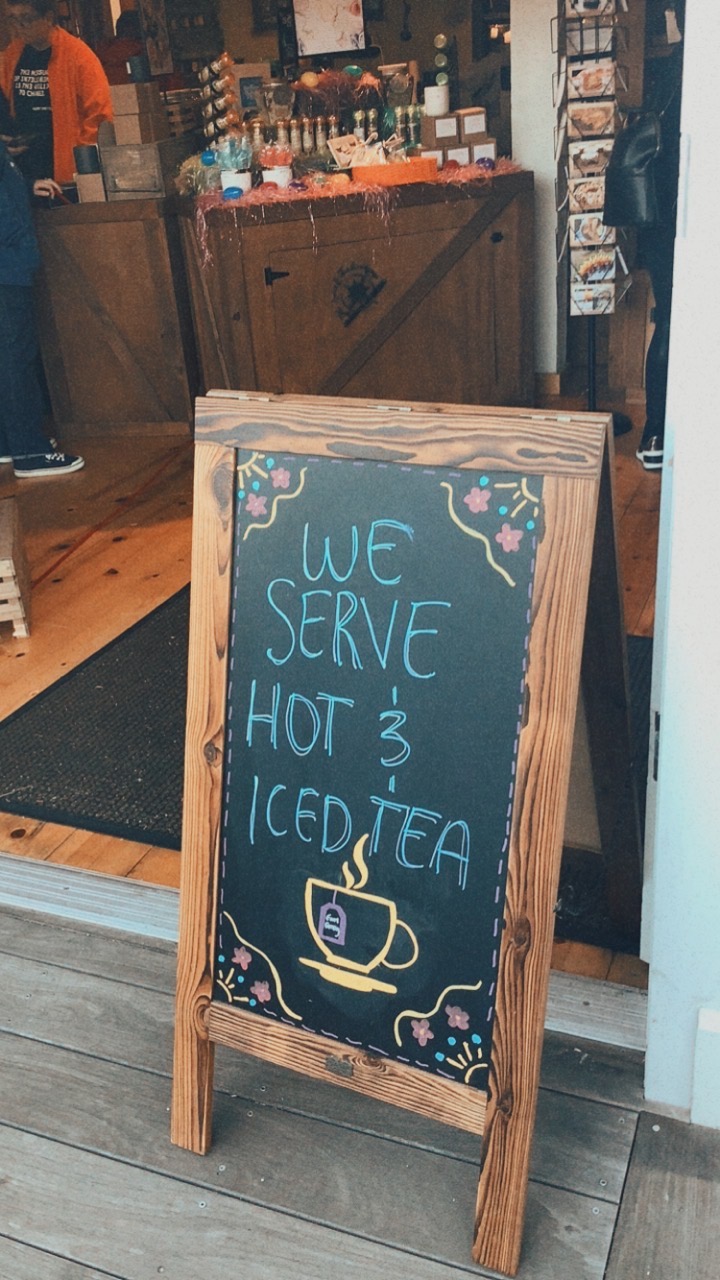 WE
SERVE
HOT &
ICED TEA